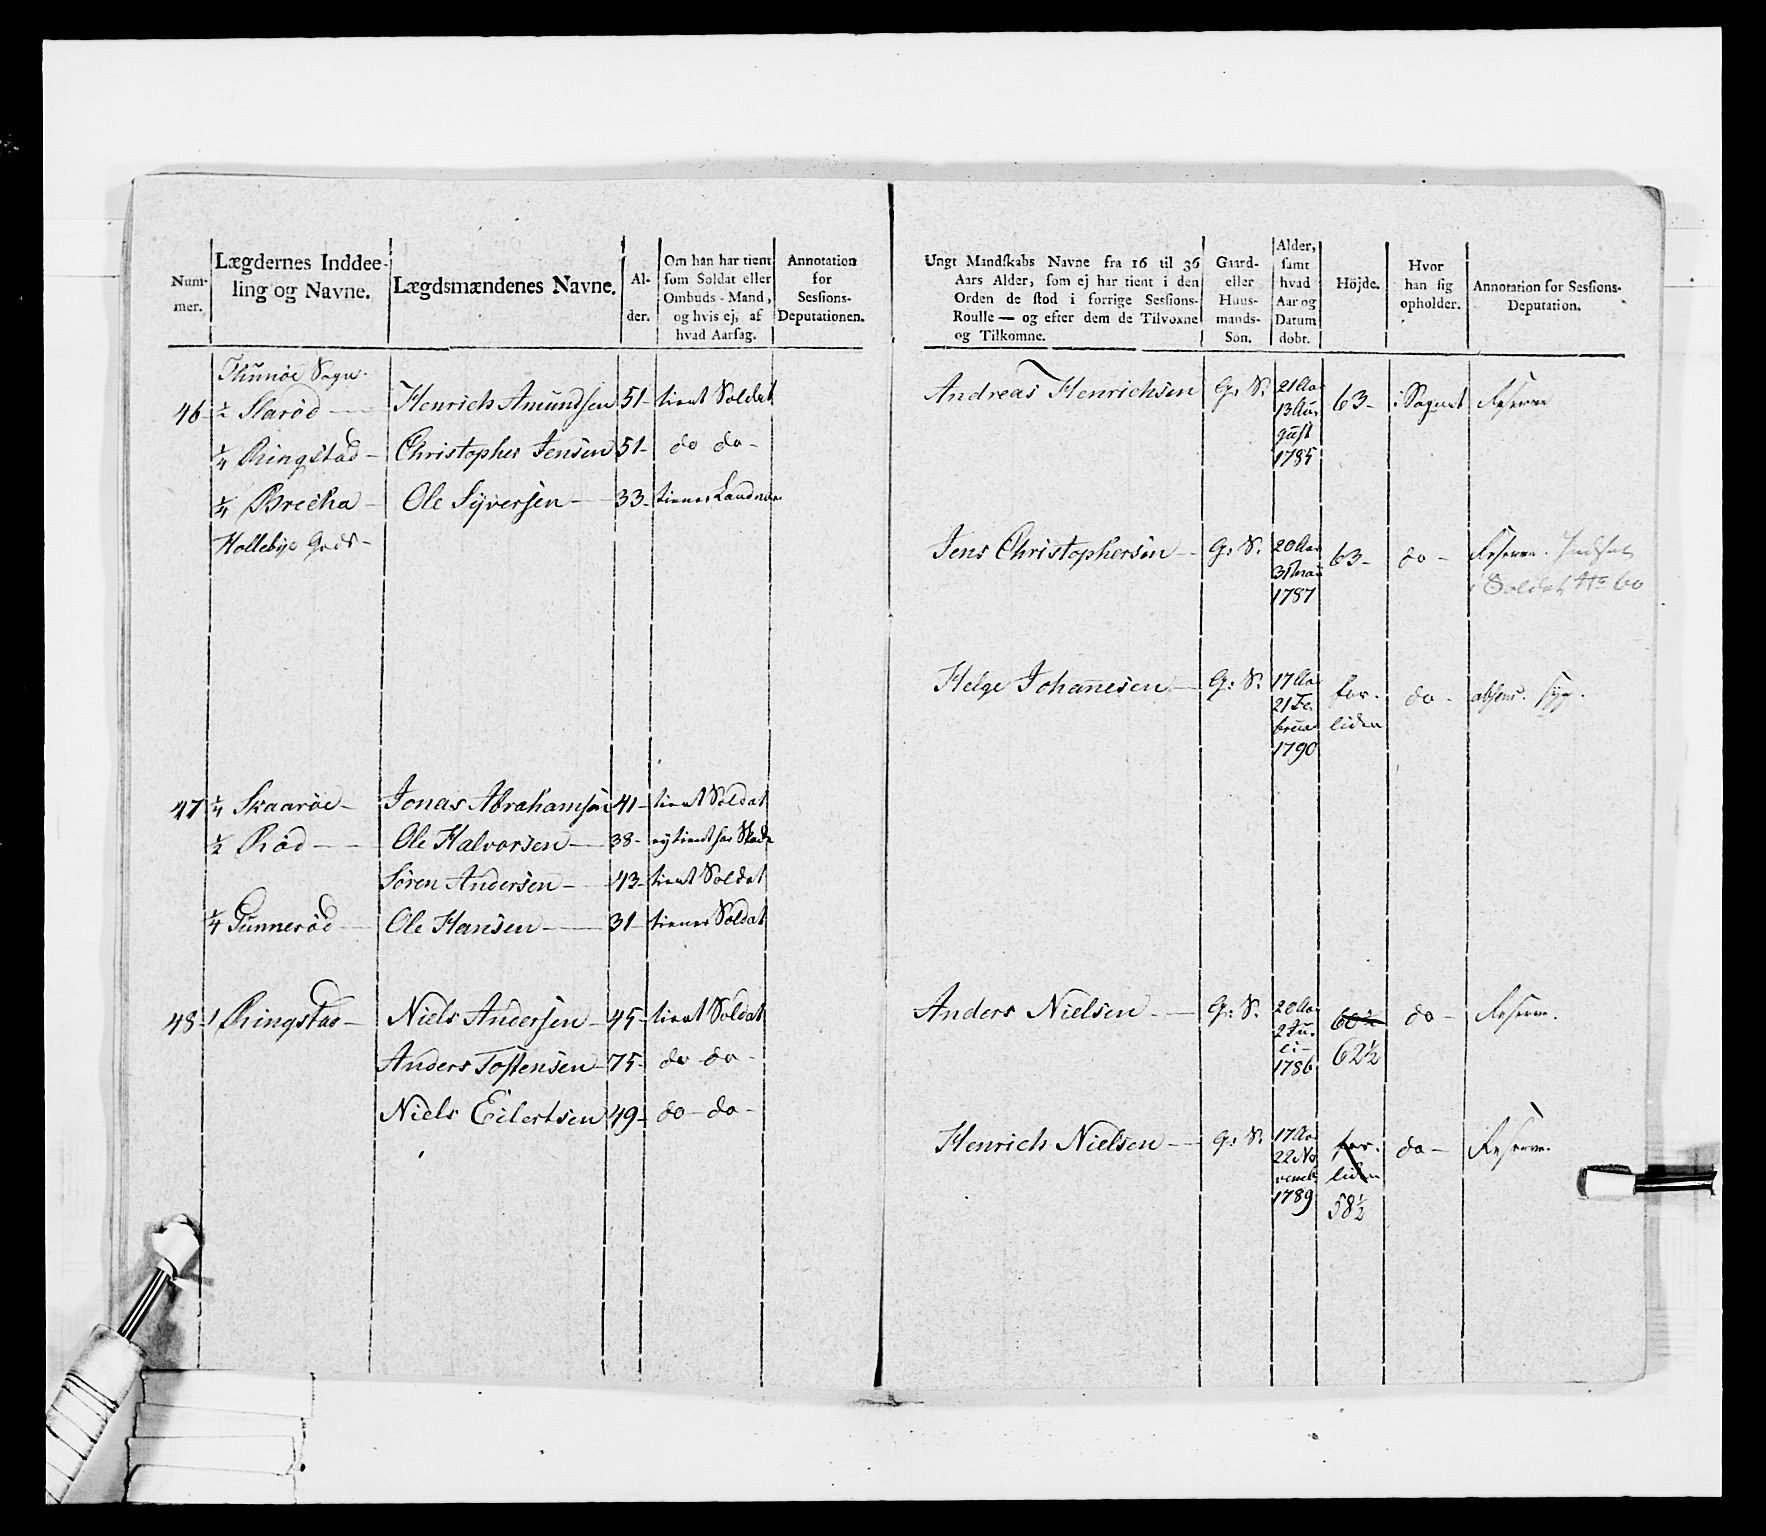 Num-
mer.
Lægdernes Inddee-
ling og Navne.
Lægdsmændenes Navne.
Al-
der.
Om han har tient
som Soldat eller
Ombuds-Mand,
og hvis ej, af
hvad Aarsag.
Annotation
for
Sessions-
Deputationen.
Thunøe Sogn.
46- ½ Slarød — Henrich Amundsen 51- tient Soldat
¼ Ringstad - Christopher Jensen 51- do do-
¼ Brecka - Ole Syversen - 33-
Hollebye Gods -
47 ¼ Skaarøe - Jonas Abrahamsen 41- tient Soldat
½ Rød - - Ole Halvorsen - 38- ey tient
Søren Andersen - 43- tient Soldat
¼ Gunnerød - Ole Hansen - 31- tiener Soldat
48- 1 Ringstad - Niels Andersen - 45- tient Soldat
Anders Tostensen - 75- do do -
Niels Eilertsen 49- do - do -
Ungt Mandskabs Navne fra 16 til 36
Aars Alder, som ej har tient i den
Orden de stod i forrige Sessions-
Roulle — og efter dem de Tilvoxne
og Tilkomne.
Gaard-
eller
Huus-
mands-
Søn.
Alder,
samt
hvad
Aar og
Datum
døbt.
Höjde.
Hvor
han sig
opholder.
Annotation for Sessions-
Deputation.
Andreas Henrichsen G: S: 21 Aar 63- i Sognet Reserve
13 Au-
gust
1785
Jens Christophersen - G: S: 20 Aar 63- do - Reserve. Indsat
31 Mai i Soldat No 60
1787
Helge Johanesen - G: S: 17 Aar for- do - absens. syg.
21 Fe- liden
bruar
1790
Anders Nielsen - G: S: 20 Aar 60½ do - Reserve.
2 Ju-
li - 62½
1786
Henrich Nielsen - G: S: 17 Aar for- do - Reserve.
22 No liden
vemb
1789 58½